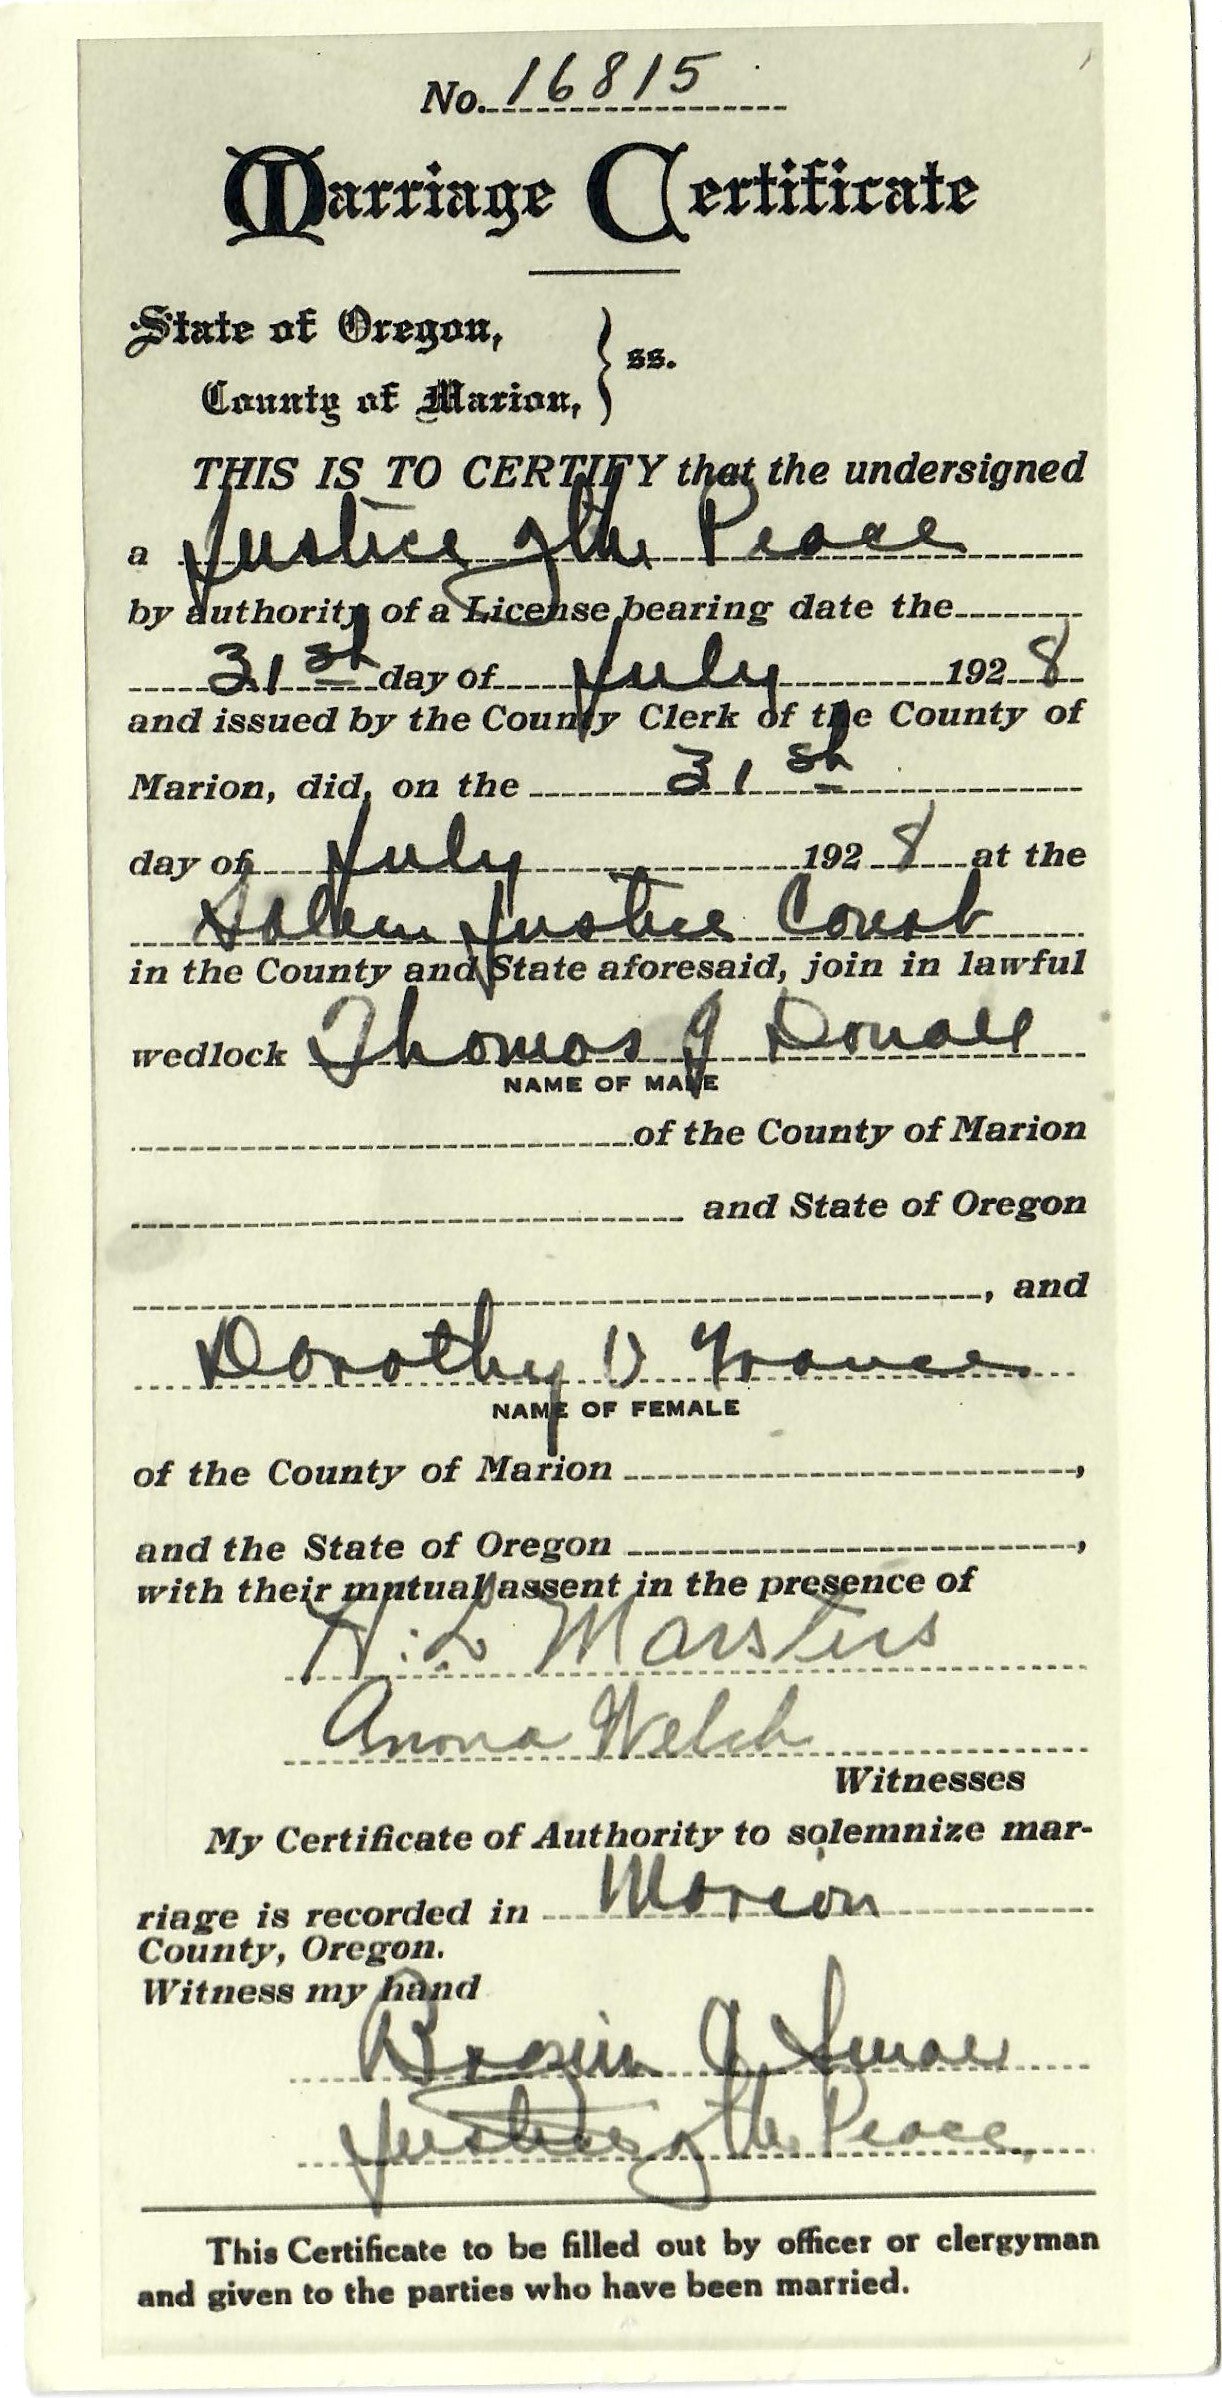 No. 16815
Marriage Certificate
State of Oregon,
County of Marion, } ss.
THIS IS TO CERTIFY that the undersigned
a Justice of the Peace
by authority of a License bearing date the
31st day of July 1928
and issued by the County Clerk of the County of
Marion, did, on the 31st
day of July 1928 at the
Salem Justice Court
in the County and State aforesaid, join in lawful
wedlock Thomas J
NAME OF MALE
of the County of Marion
and State of Oregon
, and
Dorothy V
NAME OF FEMALE
of the County of Marion ,
and the State of Oregon ,
with their mutual assent in the presence of
H. L Marsters
Anona Welch
Witnesses
My Certificate of Authority to solemnize mar-
riage is recorded in Marion
County, Oregon.
Witness my hand
Justice of the Peace
This Certificate to be filled out by officer or clergyman
and given to the parties who have been married.